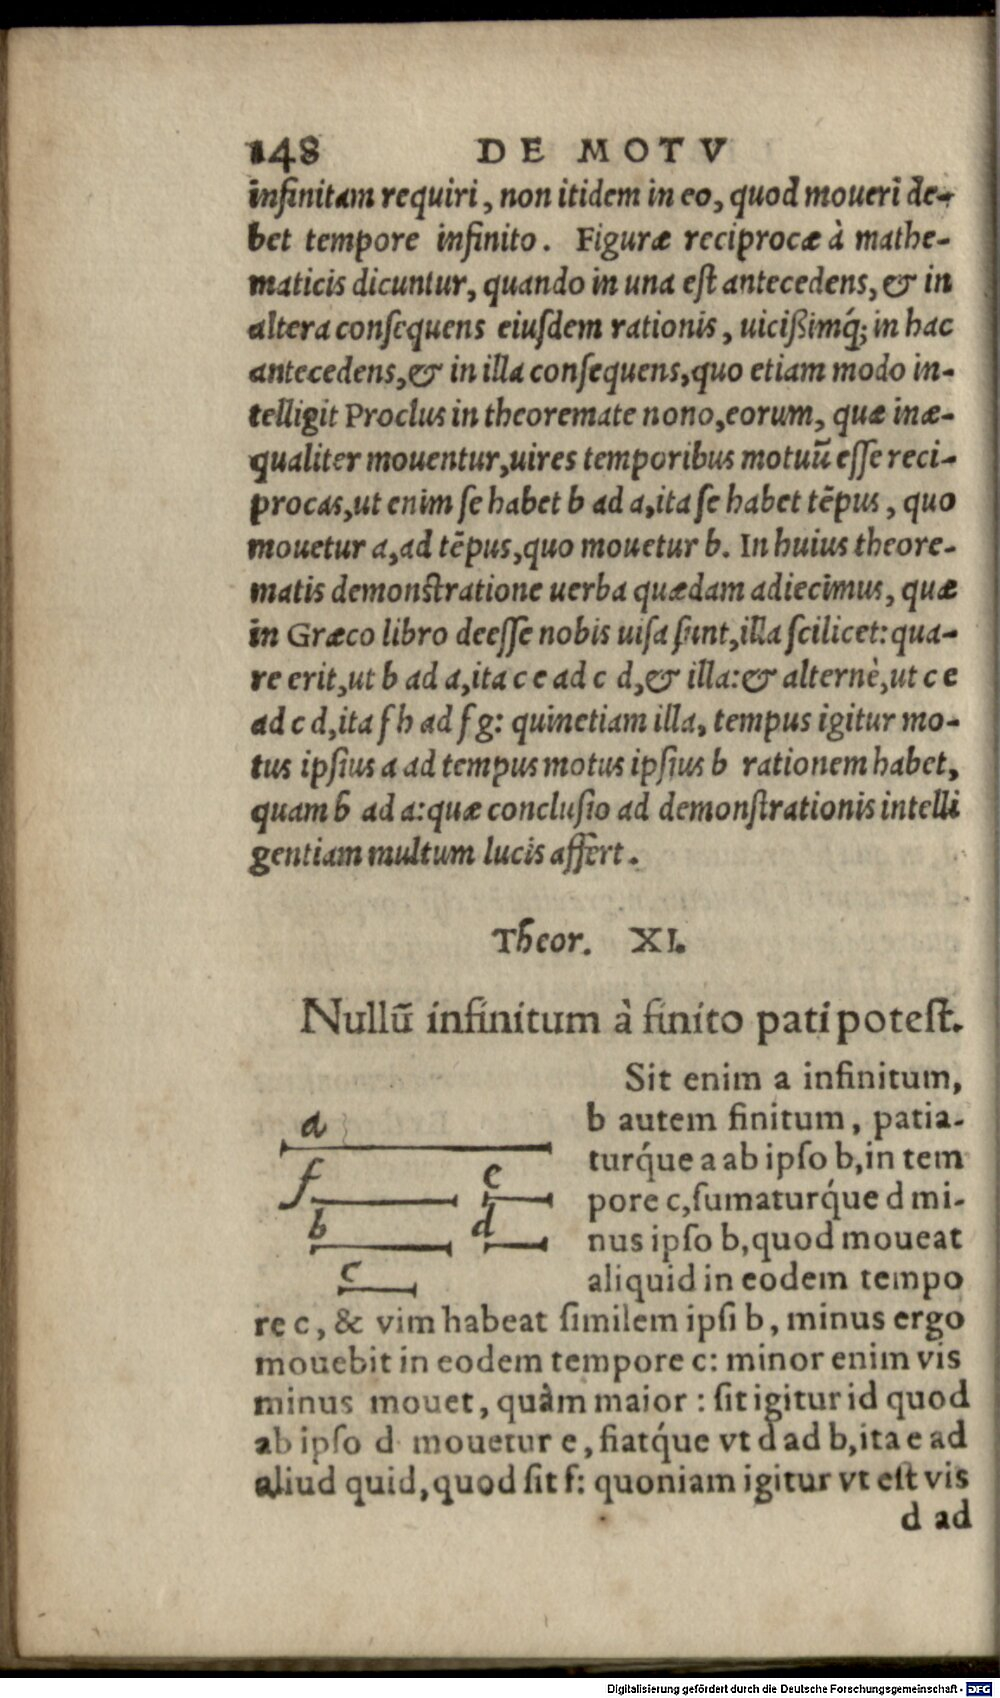 148 DE MOTV
infinitam requiri, non itidem in eo, quod moueri de-
bet tempore infinito. Figuræ reciprocæ à mathe-
maticis dicuntur, quando in una est antecedens, & in
altera consequens eiusdem rationis, uicißimq́; in hac
antecedens, & in illa consequens, quo etiam modo in-
telligit Proclus in theoremate nono, eorum, quæ inæ-
qualiter mouentur, uires temporibus motuū esse reci-
procas, ut enim se habet b ad a, ita se habet tēpus, quo
mouetur a, ad tēpus, quo mouetur b. In huius theore-
matis demonstratione uerba quædam adiecimus, quæ
in Græco libro deesse nobis uisa sunt, illa scilicet: qua-
re erit, ut b ad a, ita c e ad c d, & illa: & alternè, ut c e
ad c d, ita f h ad f g: quinetiam illa, tempus igitur mo-
tus ipsius a ad tempus motus ipsius b rationem habet,
quam b ad a: quæ conclusio ad demonstrationis intelli
gentiam multum lucis affert.
Theor. XI.
Nullū infinitum à finito pati potest.
Sit enim a infinitum,
b autem finitum, patia-
turq́ue a ab ipso b, in tem
pore c, sumaturq́ue d mi-
nus ipso b, quod moueat
aliquid in eodem tempo
a
f e
b d
c
re c, & vim habeat similem ipsi b, minus ergo
mouebit in eodem tempore c: minor enim vis
minus mouet, quàm maior: sit igitur id quod
ab ipso d mouetur e, fiatq́ue vt d ad b, ita e ad
aliud quid, quod sit f: quoniam igitur vt est vis
d ad
Digitalisierung gefördert durch die Deutsche Forschungsgemeinschaft - DFG